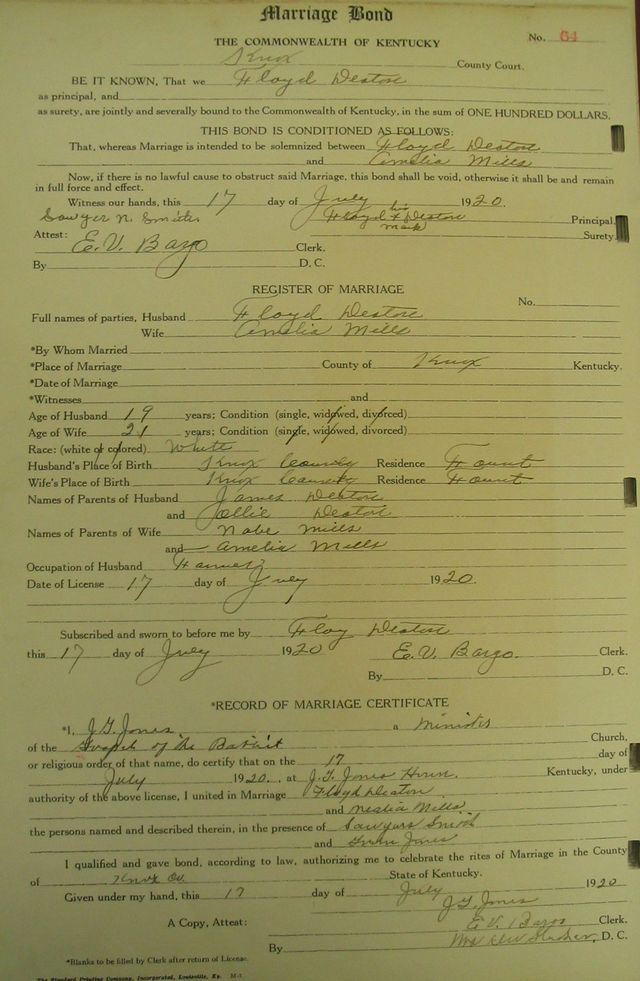 Marriage Bond
No. 64
THE COMMONWEALTH OF KENTUCKY
Knox County Court.
BE IT KNOWN, That we Floyd Deaton
as principal, and
as surety, are jointly and severally bound to the Commonwealth of Kentucky, in the sum of ONE HUNDRED DOLLARS.
THIS BOND IS CONDITIONED AS FOLLOWS:
That, whereas Marriage is intended to be solemnized between Floyd Deaton
and Amelia Mills
Now, if there is no lawful cause to obstruct said Marriage, this bond shall be void, otherwise it shall be and remain
in full force and effect.
Witness our hands, this 17 day of July 1920.
his
Sawyer N. Smith Floyd x Deaton Principal.
mark
Surety.
Attest: E.V. Bargo Clerk.
By D. C.
REGISTER OF MARRIAGE
No.
Full names of parties, Husband Floyd Deaton
Wife Amelia Mills
*By Whom Married
*Place of Marriage County of Knox Kentucky.
*Date of Marriage
*Witnesses and
Age of Husband 19 years; Condition (single, widowed, divorced)
Age of Wife 21 years; Condition (single, widowed, divorced)
Race: (white or colored) White
Husband's Place of Birth Knox County Residence Fount
Wife's Place of Birth Knox County Residence Fount
Names of Parents of Husband James Deaton
and Deaton
Names of Parents of Wife Nabe Mills
and Amelia Mills
Occupation of Husband Farmer
Date of License 17 day of July 1920.
Subscribed and sworn to before me by Floy Deaton
this 17 day of July 1920 E.V. Bargo. Clerk.
By D. C.
*RECORD OF MARRIAGE CERTIFICATE
*I, J.G. Jones. a Minister
of the Gospel of the Babtist Church,
or religious order of that name, do certify that on the 17 day of
July 1920., at J.G. Jones Kentucky, under
authority of the above license, I united in Marriage Floyd Deaton
and Mills
the persons named and described therein, in the presence of Sawyers Smith
and Jones
I qualified and gave bond, according to law, authorizing me to celebrate the rites of Marriage in the County
of Knox Co State of Kentucky.
Given under my hand, this 17 day of July 1920
J.G. Jones
A Copy, Attest: E.V. Bargo Clerk.
By D. C.
*Blanks to be filled by Clerk after return of License.
The Standard Printing Company, Incorporated, Louisville, Ky.